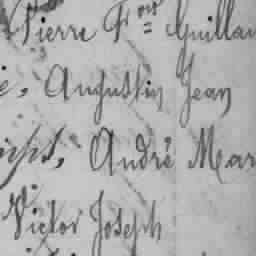 Pierre F.ois Guillau
e, Augustin Jean
André Mar
Victor Joseph